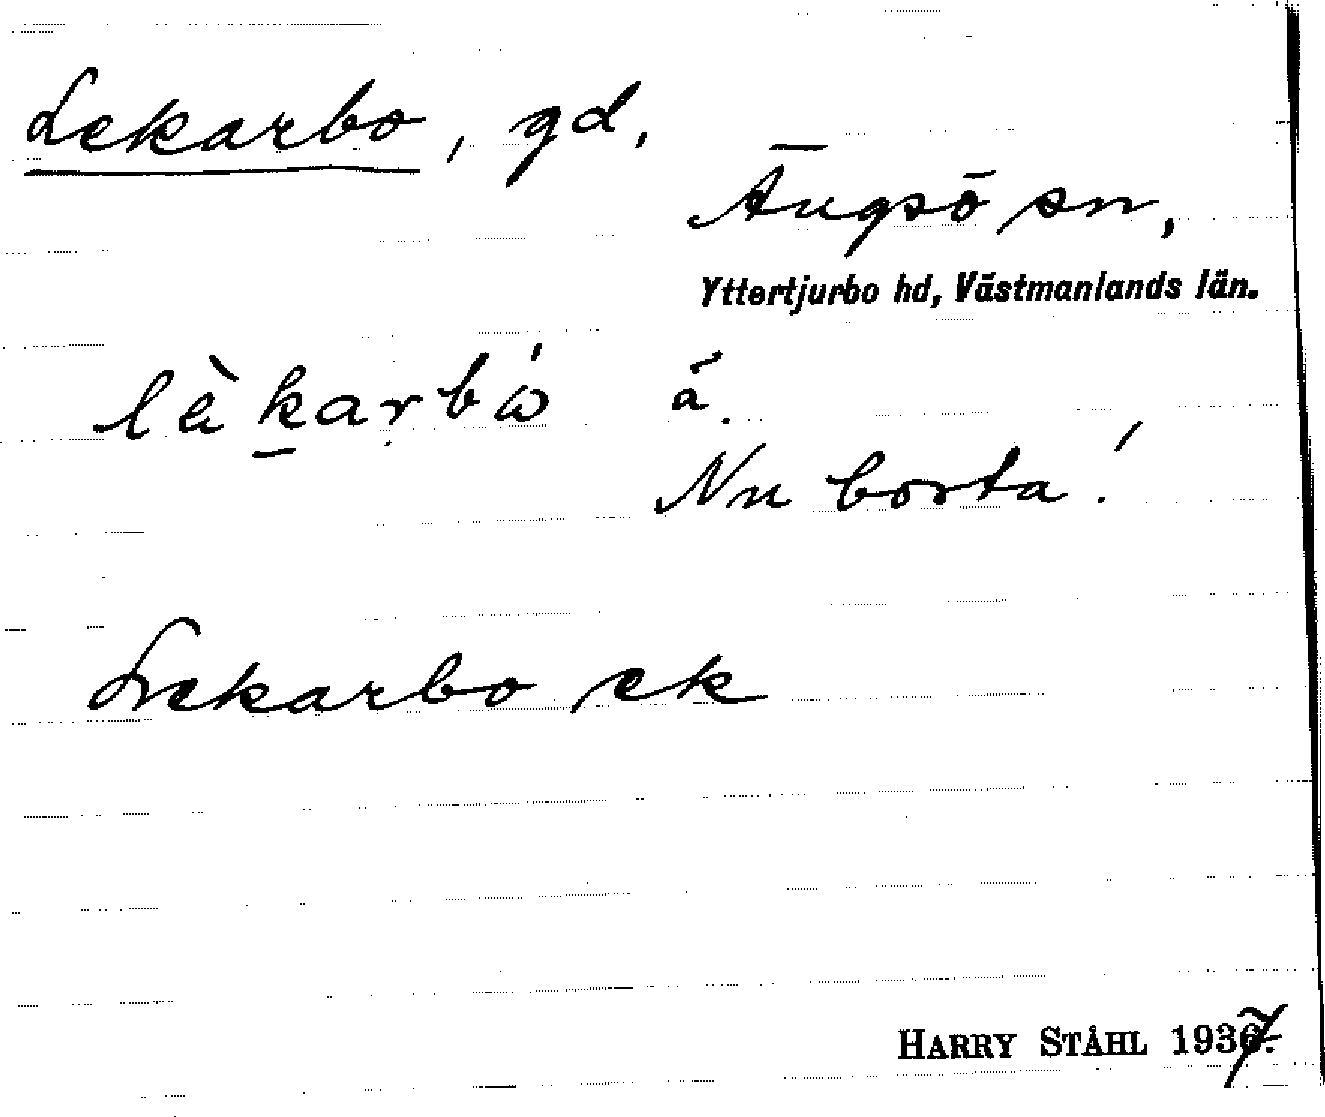 Lekarbo, gd.
Ängsö sn,
Yttertjurbo hd, Västmanlands län.
lèkarbó á.
Nu borta!
Lekarbo ek
HARRY STÅHL 1937